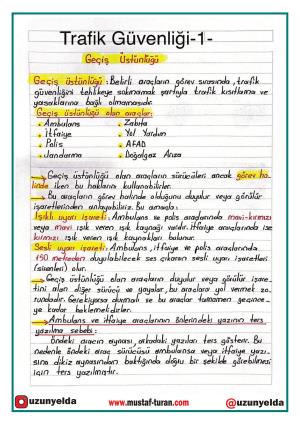 Trafik Güvenliği-1-
Geçiş Üstünlüğü
Geçiş üstünlüğü: Belirli araçların görev sırasında, trafik
güvenliğini tehlikeye sokmamak şartıyla trafik kısıtlama ve
yasaklarına bağlı olmamasıdır.
Geçiş üstünlüğü olan araçlar:
• Ambulans
• Zabıta
• İtfaiye
• Yol Yardım
• Polis
• AFAD
• Jandarma
• Doğalgaz Arıza
Geçiş üstünlüğü olan araçların sürücüleri ancak görev ha
linde iken bu hakların kullanabilirler.
Bu araçların görev halinde olduğunu duyulur veya görülür
işaretlerinden anlayabiliriz. Bu amaçla:
Işıklı uyarı işareti: Ambulans ve polis araçlarında mavi-kırmızı
veya mavi ışık veren ışık kaynağı vardır. İtfaiye araçlarında ise
kırmızı ışık veren ışık kaynakları bulunur.
Sesli uyarı işareti: Ambulans, itfaiye ve polis araçlarında
150 metreden duyulabilecek ses çıkaran sesli uyarı işaretleri
(sirenleri) olur.
Geçiş üstünlüğü olan araçların duyulur veya görülür işare
tini alan diğer sürücü ve yayalar, bu araçlara yol vermek zo
rundadır. Gerekiyorsa durmalı ve bu araçlar tamamen geçince
ye kadar beklemelidirler.
Ambulans ve itfaiye araçlarının önlerindeki yazının ters
yazılma sebebi:
Öndeki aracın aynası, arkadaki yazıları ters gösterir. Bu
nedenle öndeki araç sürücüsü ambulansa veya itfaiye yazı
sına dikiz aynasından baktığında doğru bir şekilde görebilmesi
için ters yazılmıştır.
uzunyelda
www.mustaf-turan.com
@uzunyelda